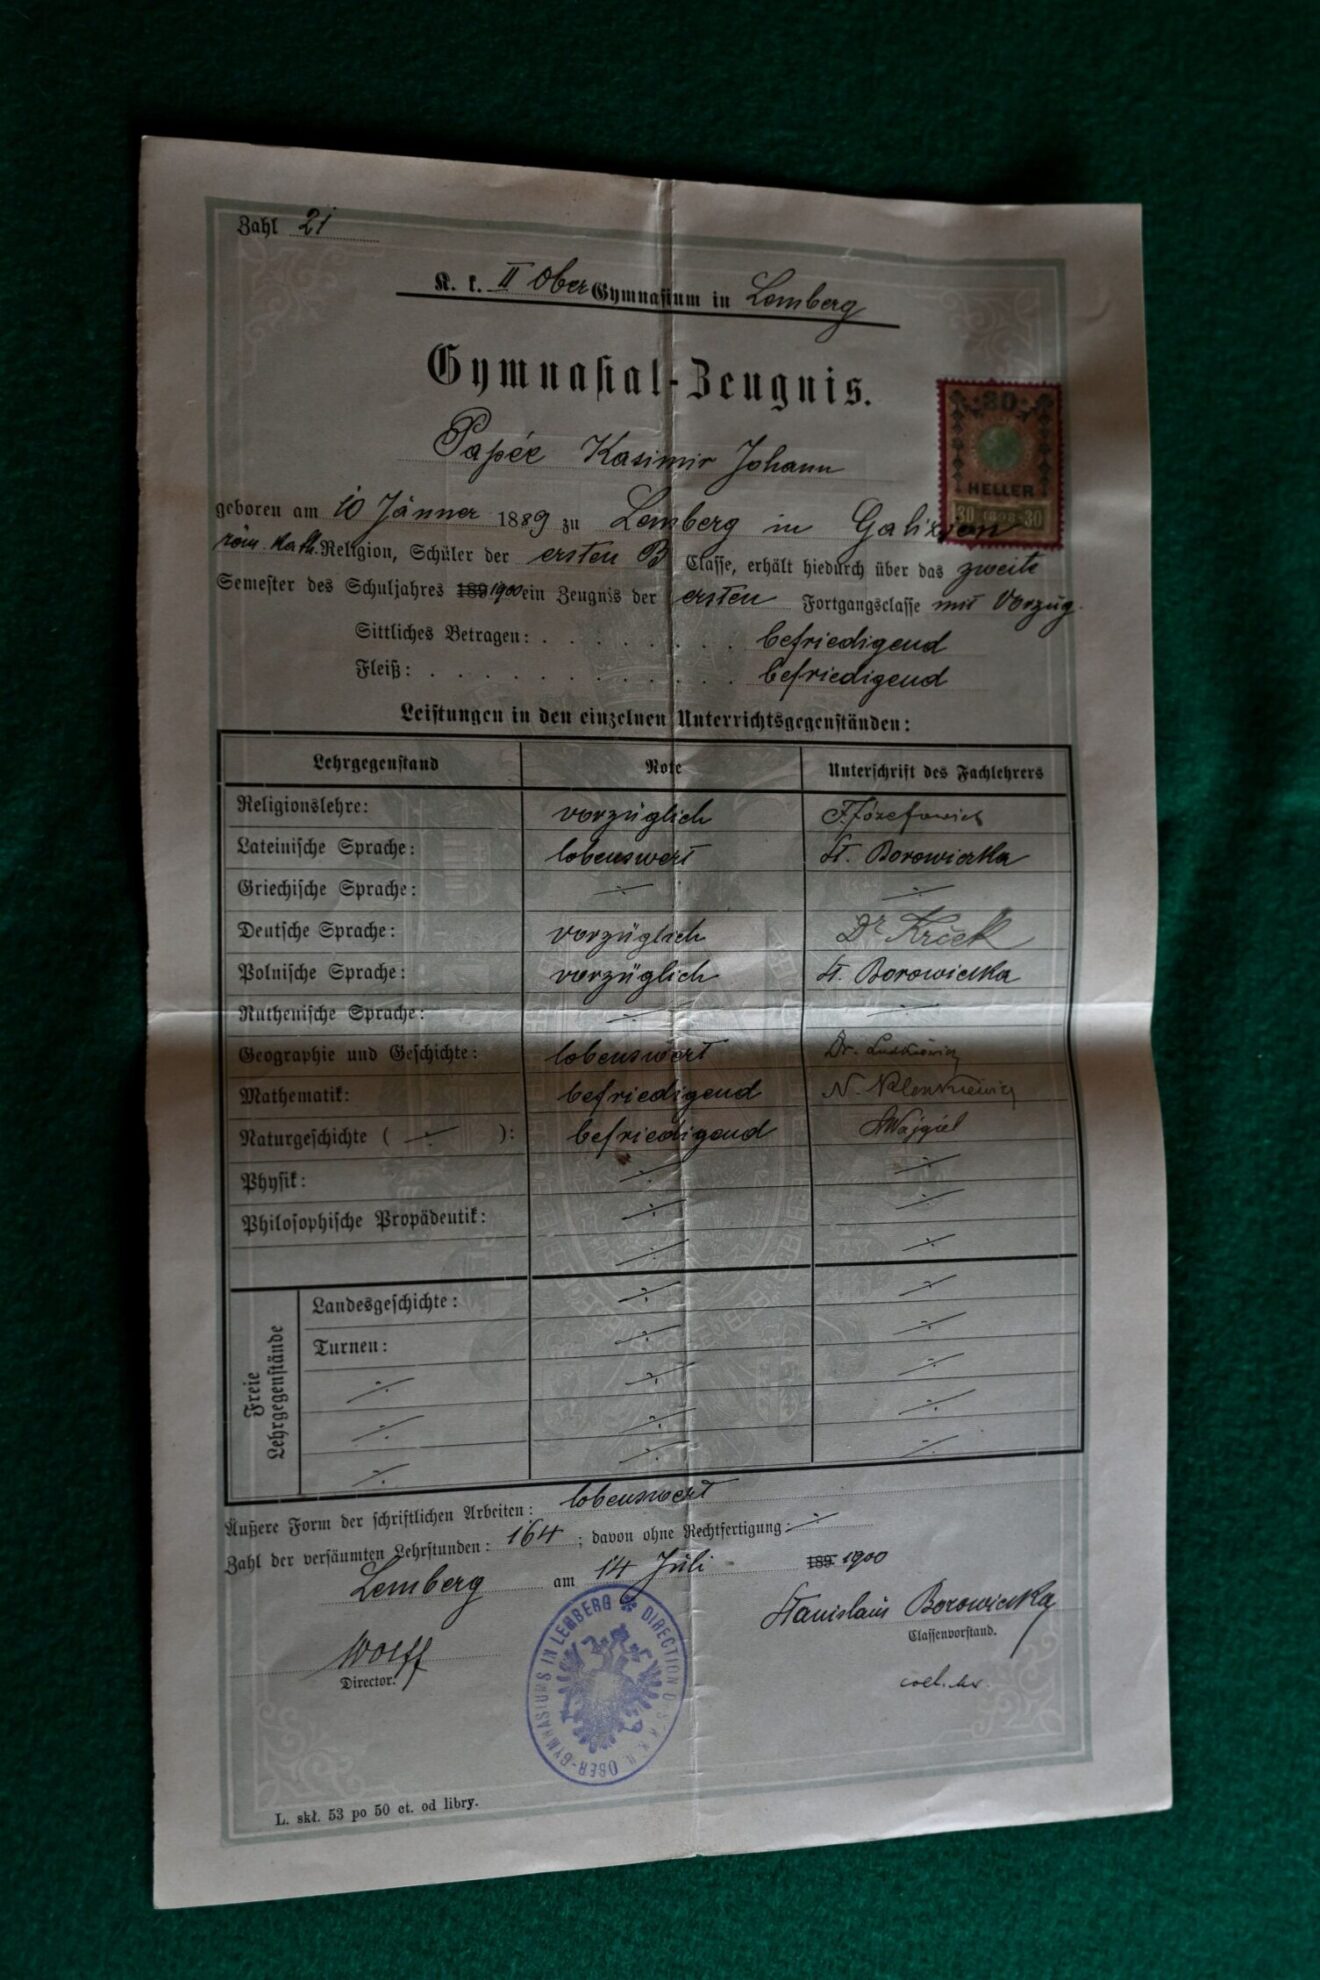 Zahl 21
K. k. II Ober Gymnasium in Lemberg
Gymnasial-Zeugnis.
Papée Kasimir Johann
30
HELLER
30 1898 30
geboren am 10 Jänner 1889 zu Lemberg in Galizien
röm. kath. Religion, Schüler der ersten B Classe, erhält hiedurch über das zweite
Semester des Schuljahres 189 1900 ein Zeugnis der ersten Fortgangsclasse mit Vorzug.
Sittliches Betragen: . . . . . . . befriedigend
Fleiß: . . . . . . . . . . . . befriedigend
Leistungen in den einzelnen Unterrichtsgegenständen:
Lehrgegenstand Note Unterschrift des Fachlehrers
Religionslehre: vorzüglich Józefowicz
Lateinische Sprache: lobenswert St. Borowiczka
Griechische Sprache: ·/· ·/·
Deutsche Sprache: vorzüglich Dr Krček
Polnische Sprache: vorzüglich St. Borowiczka
Ruthenische Sprache: ·/· ·/·
Geographie und Geschichte: lobenswert Dr.
Mathematik: befriedigend N.
Naturgeschichte ( ·/· ): befriedigend Wajgiel
Physik: ·/· ·/·
Philosophische Propädeutik: ·/· ·/·
·/· ·/·
Freie Lehrgegenstände
Landesgeschichte: ·/· ·/·
Turnen: ·/· ·/·
·/· ·/· ·/·
·/· ·/· ·/·
·/· ·/· ·/·
Äußere Form der schriftlichen Arbeiten: lobenswert
Zahl der versäumten Lehrstunden: 164 ; davon ohne Rechtfertigung: ·/·
Lemberg am 14 Juli 189 1900
Wolff
Director.
DIRECTION DES K. K. II. OBER-GYMNASIUMS IN LEMBERG
Stanislaus Borowiczka
Classenvorstand.
L. skł. 53 po 50 ct. od libry.